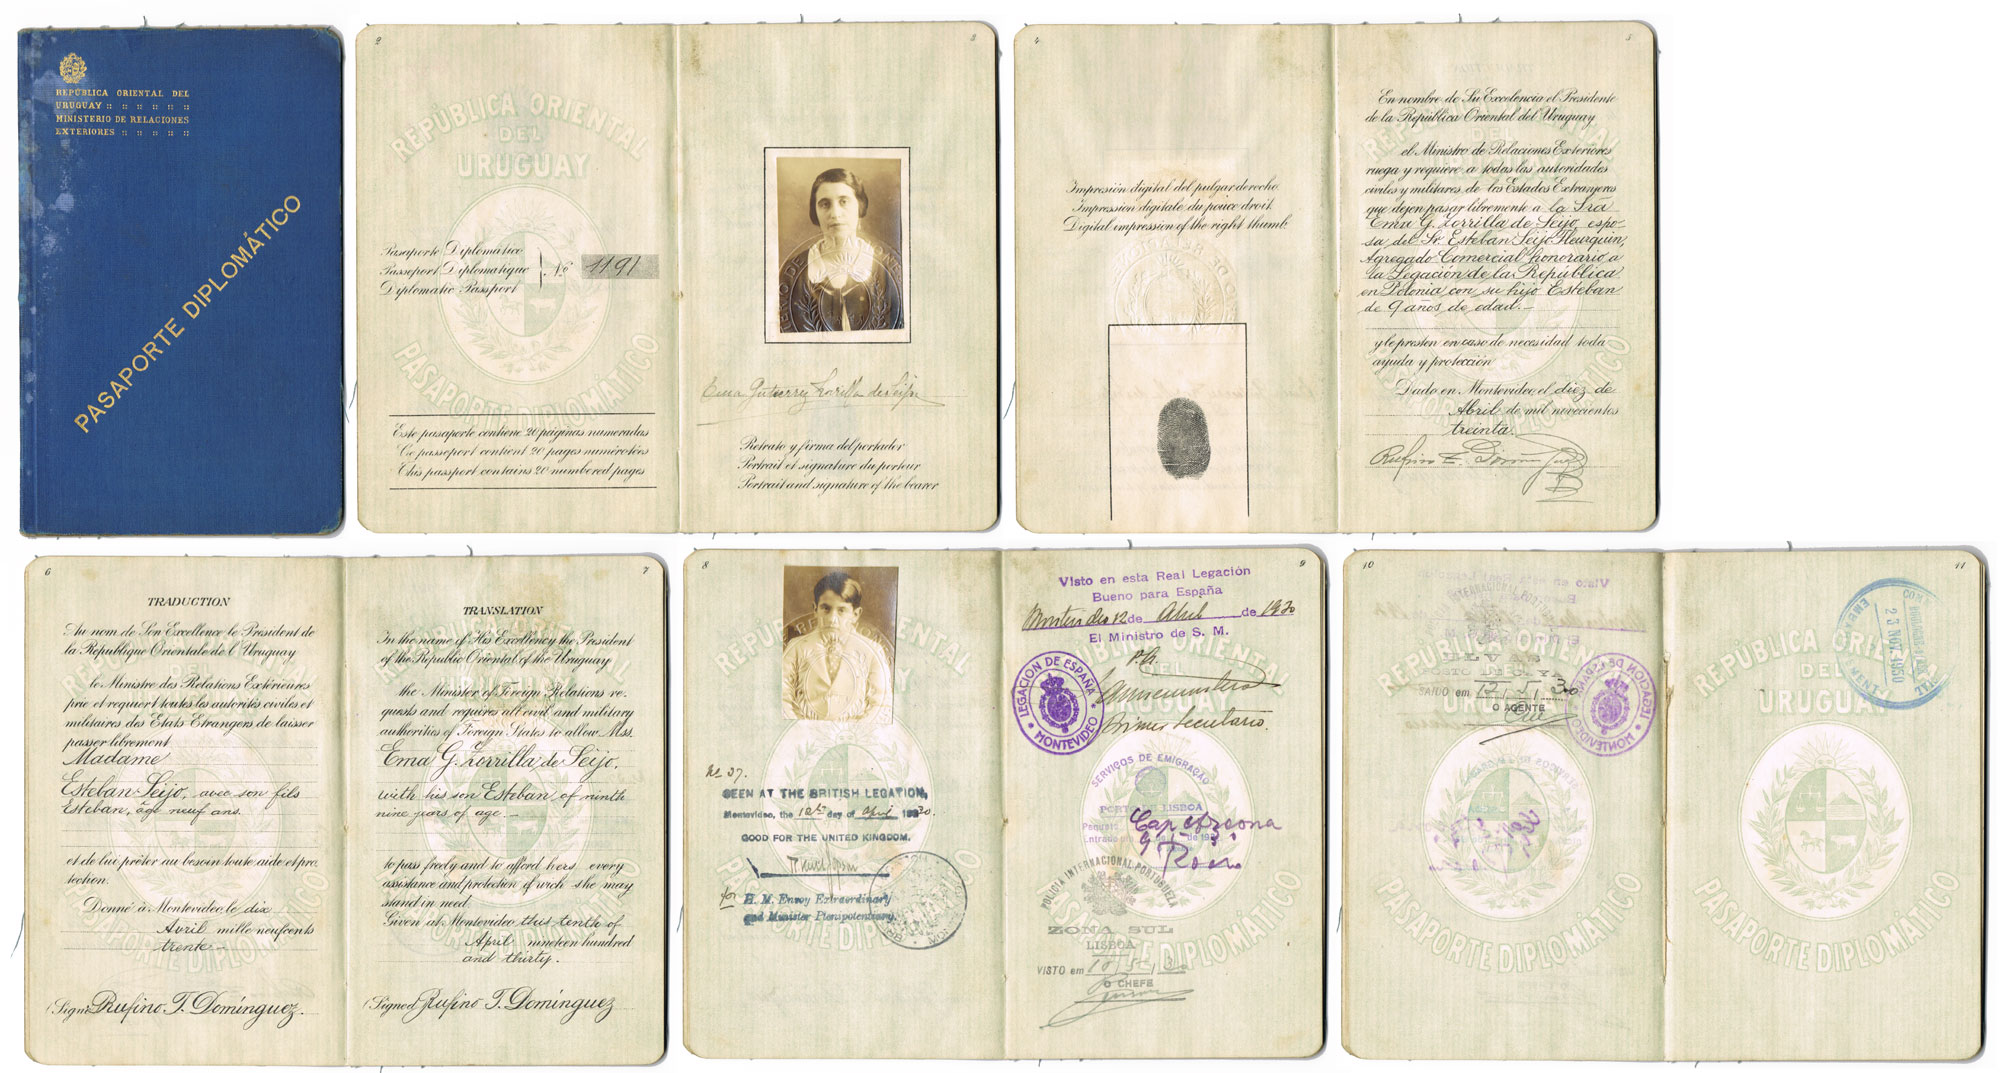 REPÚBLICA ORIENTAL DEL
URUGUAY :: :: :: :: :: ::
MINISTERIO DE RELACIONES
EXTERIORES :: :: :: :: ::
PASAPORTE DIPLOMÁTICO
2
REPÚBLICA ORIENTAL
DEL
URUGUAY
Pasaporte Diplomático
Passeport Diplomatique
Diplomatic Passport
Nº 1191
PASAPORTE DIPLOMÁTICO
Este pasaporte contiene 20 páginas numeradas
Ce passeport contient 20 pages numérotées
This passport contains 20 numbered pages
3
Ema Gutierrez Zorrilla de Seijo
Retrato y firma del portador
Portrait et signature du porteur
Portrait and signature of the bearer
4
Impresión digital del pulgar derecho.
Impression digitale du pouce droit.
Digital impression of the right thumb.
5
REPÚBLICA ORIENTAL
DEL
URUGUAY
En nombre de Su Excelencia el Presidente
de la República Oriental del Uruguay
el Ministro de Relaciones Exteriores
ruega y requiere a todas las autoridades
civiles y militares de los Estados Extranjeros
que dejen pasar libremente a la Sra
Ema G. Zorrilla de Seijo, espo-
sa del Sr. Esteban Seijo Fleurquin,
Agregado Comercial honorario a
la Legación de la República
en Polonia con su hijo Esteban
de 9 años de edad.-
y le presten en caso de necesidad toda
ayuda y protección
Dado en Montevideo, el diez de
Abril de mil novecientos
treinta.
PASAPORTE DIPLOMÁTICO
Rufino T. Domínguez
6
TRADUCTION
Au nom de Son Excellence le President de
la Republique Orientale de l'Uruguay
le Ministre des Relations Extérieures
prie et requiert toutes les autorités civiles et
militaires des Etats Etrangers de laisser
passer librement
Madame
Esteban Seijo, avec son fils
Esteban, âge neuf ans.
et de lui prêter au besoin toute aide et pro-
tection.
Donné à Montevideo, le dix
Avril mille neufcents
trente -
PASAPORTE DIPLOMÁTICO
(Signé Rufino T. Domínguez.
7
TRANSLATION
In the name of His Excellency the President
of the Republic Oriental of the Uruguay
the Minister of Foreign Relations re-
quests and requires all civil and military
authorities of Foreign States to allow Mss.
Ema G. Zorrilla de Seijo,
with his son Esteban, of ninth
nine years of age.-
to pass freely and to afford hers every
assistance and protection of wich she may
stand in need.
Given at Montevideo this tenth of
April nineteen hundred
and thirty.
(Signed Rufino T. Domínguez
8
REPÚBLICA ORIENTAL
DEL
URUGUAY
No 37.
SEEN AT THE BRITISH LEGATION,
Montevideo, the 12th day of April 1930.
GOOD FOR THE UNITED KINGDOM.
for H. M. Envoy Extraordinary
and Minister Plenipotentiary.
PASAPORTE DIPLOMÁTICO
9
Visto en esta Real Legación
Bueno para España
Montevideo 12 de Abril de 1930
El Ministro de S. M.
P.A.
Primer Secretario.
LEGACIÓN DE ESPAÑA
MONTEVIDEO
SERVIÇOS DE EMIGRAÇÃO
PORTO DE LISBOA
Cap Arcona
POLICIA INTERNACIONAL PORTUGUESA
ZONA SUL
LISBOA
VISTO em 10 5 30
O CHEFE
10
REPÚBLICA ORIENTAL
DEL
URUGUAY
ELVAS
SAIDO em 12 5 30
O AGENTE
PASAPORTE DIPLOMÁTICO
11
23 NOV 1950
REPÚBLICA ORIENTAL
DEL
URUGUAY
PASAPORTE DIPLOMÁTICO